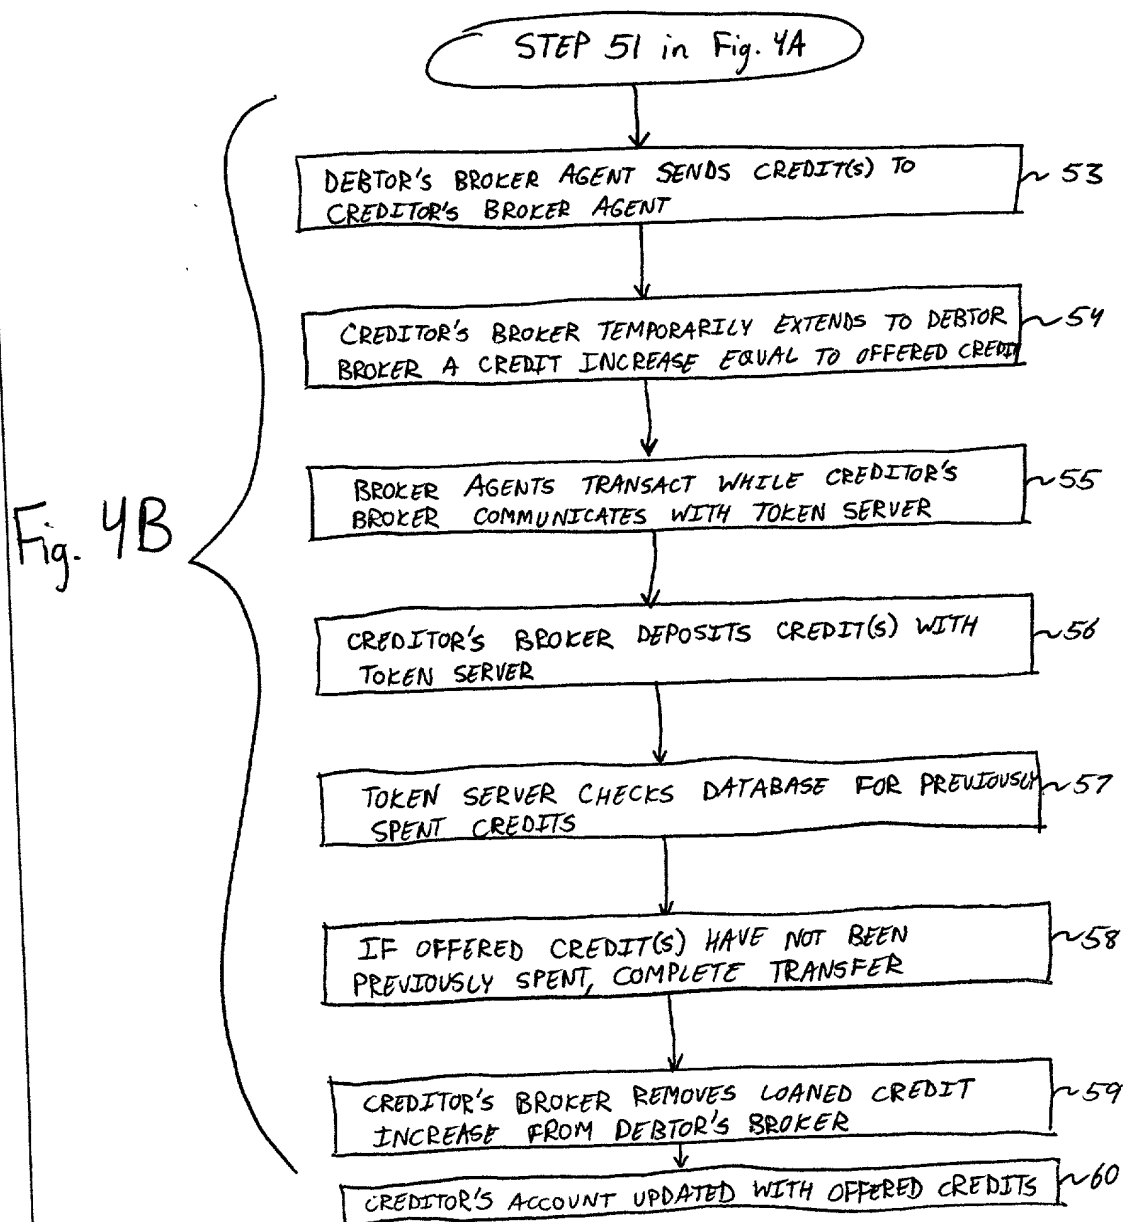 STEP 51 in Fig. 4A
DEBTOR'S BROKER AGENT SENDS CREDIT(S) TO
CREDITOR'S BROKER AGENT
53
CREDITOR'S BROKER TEMPORARILY EXTENDS TO DEBTOR
BROKER A CREDIT INCREASE EQUAL TO OFFERED CREDIT
54
BROKER AGENTS TRANSACT WHILE CREDITOR'S
BROKER COMMUNICATES WITH TOKEN SERVER
55
Fig. 4B
CREDITOR'S BROKER DEPOSITS CREDIT(S) WITH
TOKEN SERVER
56
TOKEN SERVER CHECKS DATABASE FOR PREVIOUSLY
SPENT CREDITS
57
IF OFFERED CREDIT(S) HAVE NOT BEEN
PREVIOUSLY SPENT, COMPLETE TRANSFER
58
CREDITOR'S BROKER REMOVES LOANED CREDIT
INCREASE FROM DEBTOR'S BROKER
59
CREDITOR'S ACCOUNT UPDATED WITH OFFERED CREDITS
60